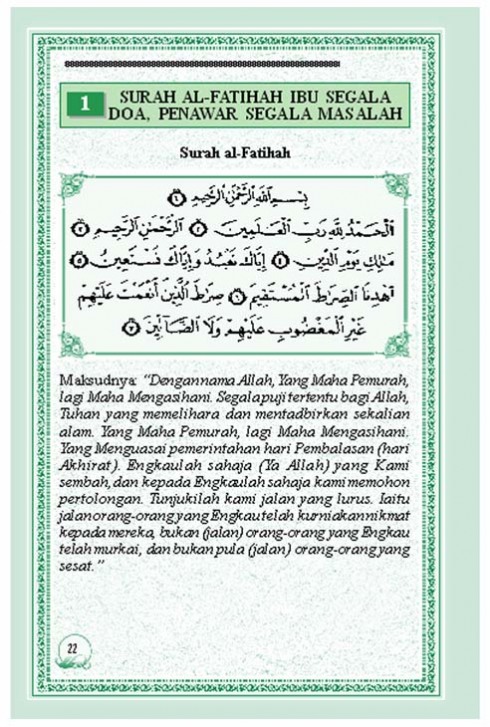 1
SURAH AL-FATIHAH IBU SEGALA
DOA, PENAWAR SEGALA MASALAH
Surah al-Fatihah
بِسْمِ اللَّهِ الرَّحْمَٰنِ الرَّحِيمِ ١
الْحَمْدُ لِلَّهِ رَبِّ الْعَٰلَمِينَ ٢ الرَّحْمَٰنِ الرَّحِيمِ ٣
مَٰلِكِ يَوْمِ الدِّينِ ٤ إِيَّاكَ نَعْبُدُ وَإِيَّاكَ نَسْتَعِينُ ٥
اهْدِنَا الصِّرَٰطَ الْمُسْتَقِيمَ ٦ صِرَٰطَ الَّذِينَ أَنْعَمْتَ عَلَيْهِمْ
غَيْرِ الْمَغْضُوبِ عَلَيْهِمْ وَلَا الضَّآلِّينَ ٧
Maksudnya: “Dengan nama Allah, Yang Maha Pemurah,
lagi Maha Mengasihani. Segala puji tertentu bagi Allah,
Tuhan yang memelihara dan mentadbirkan sekalian
alam. Yang Maha Pemurah, lagi Maha Mengasihani.
Yang Menguasai pemerintahan hari Pembalasan (hari
Akhirat). Engkaulah sahaja (Ya Allah) yang Kami
sembah, dan kepada Engkaulah sahaja kami memohon
pertolongan. Tunjukilah kami jalan yang lurus. Iaitu
jalan orang-orang yang Engkau telah kurniakan nikmat
kepada mereka, bukan (jalan) orang-orang yang Engkau
telah murkai, dan bukan pula (jalan) orang-orang yang
sesat.”
22